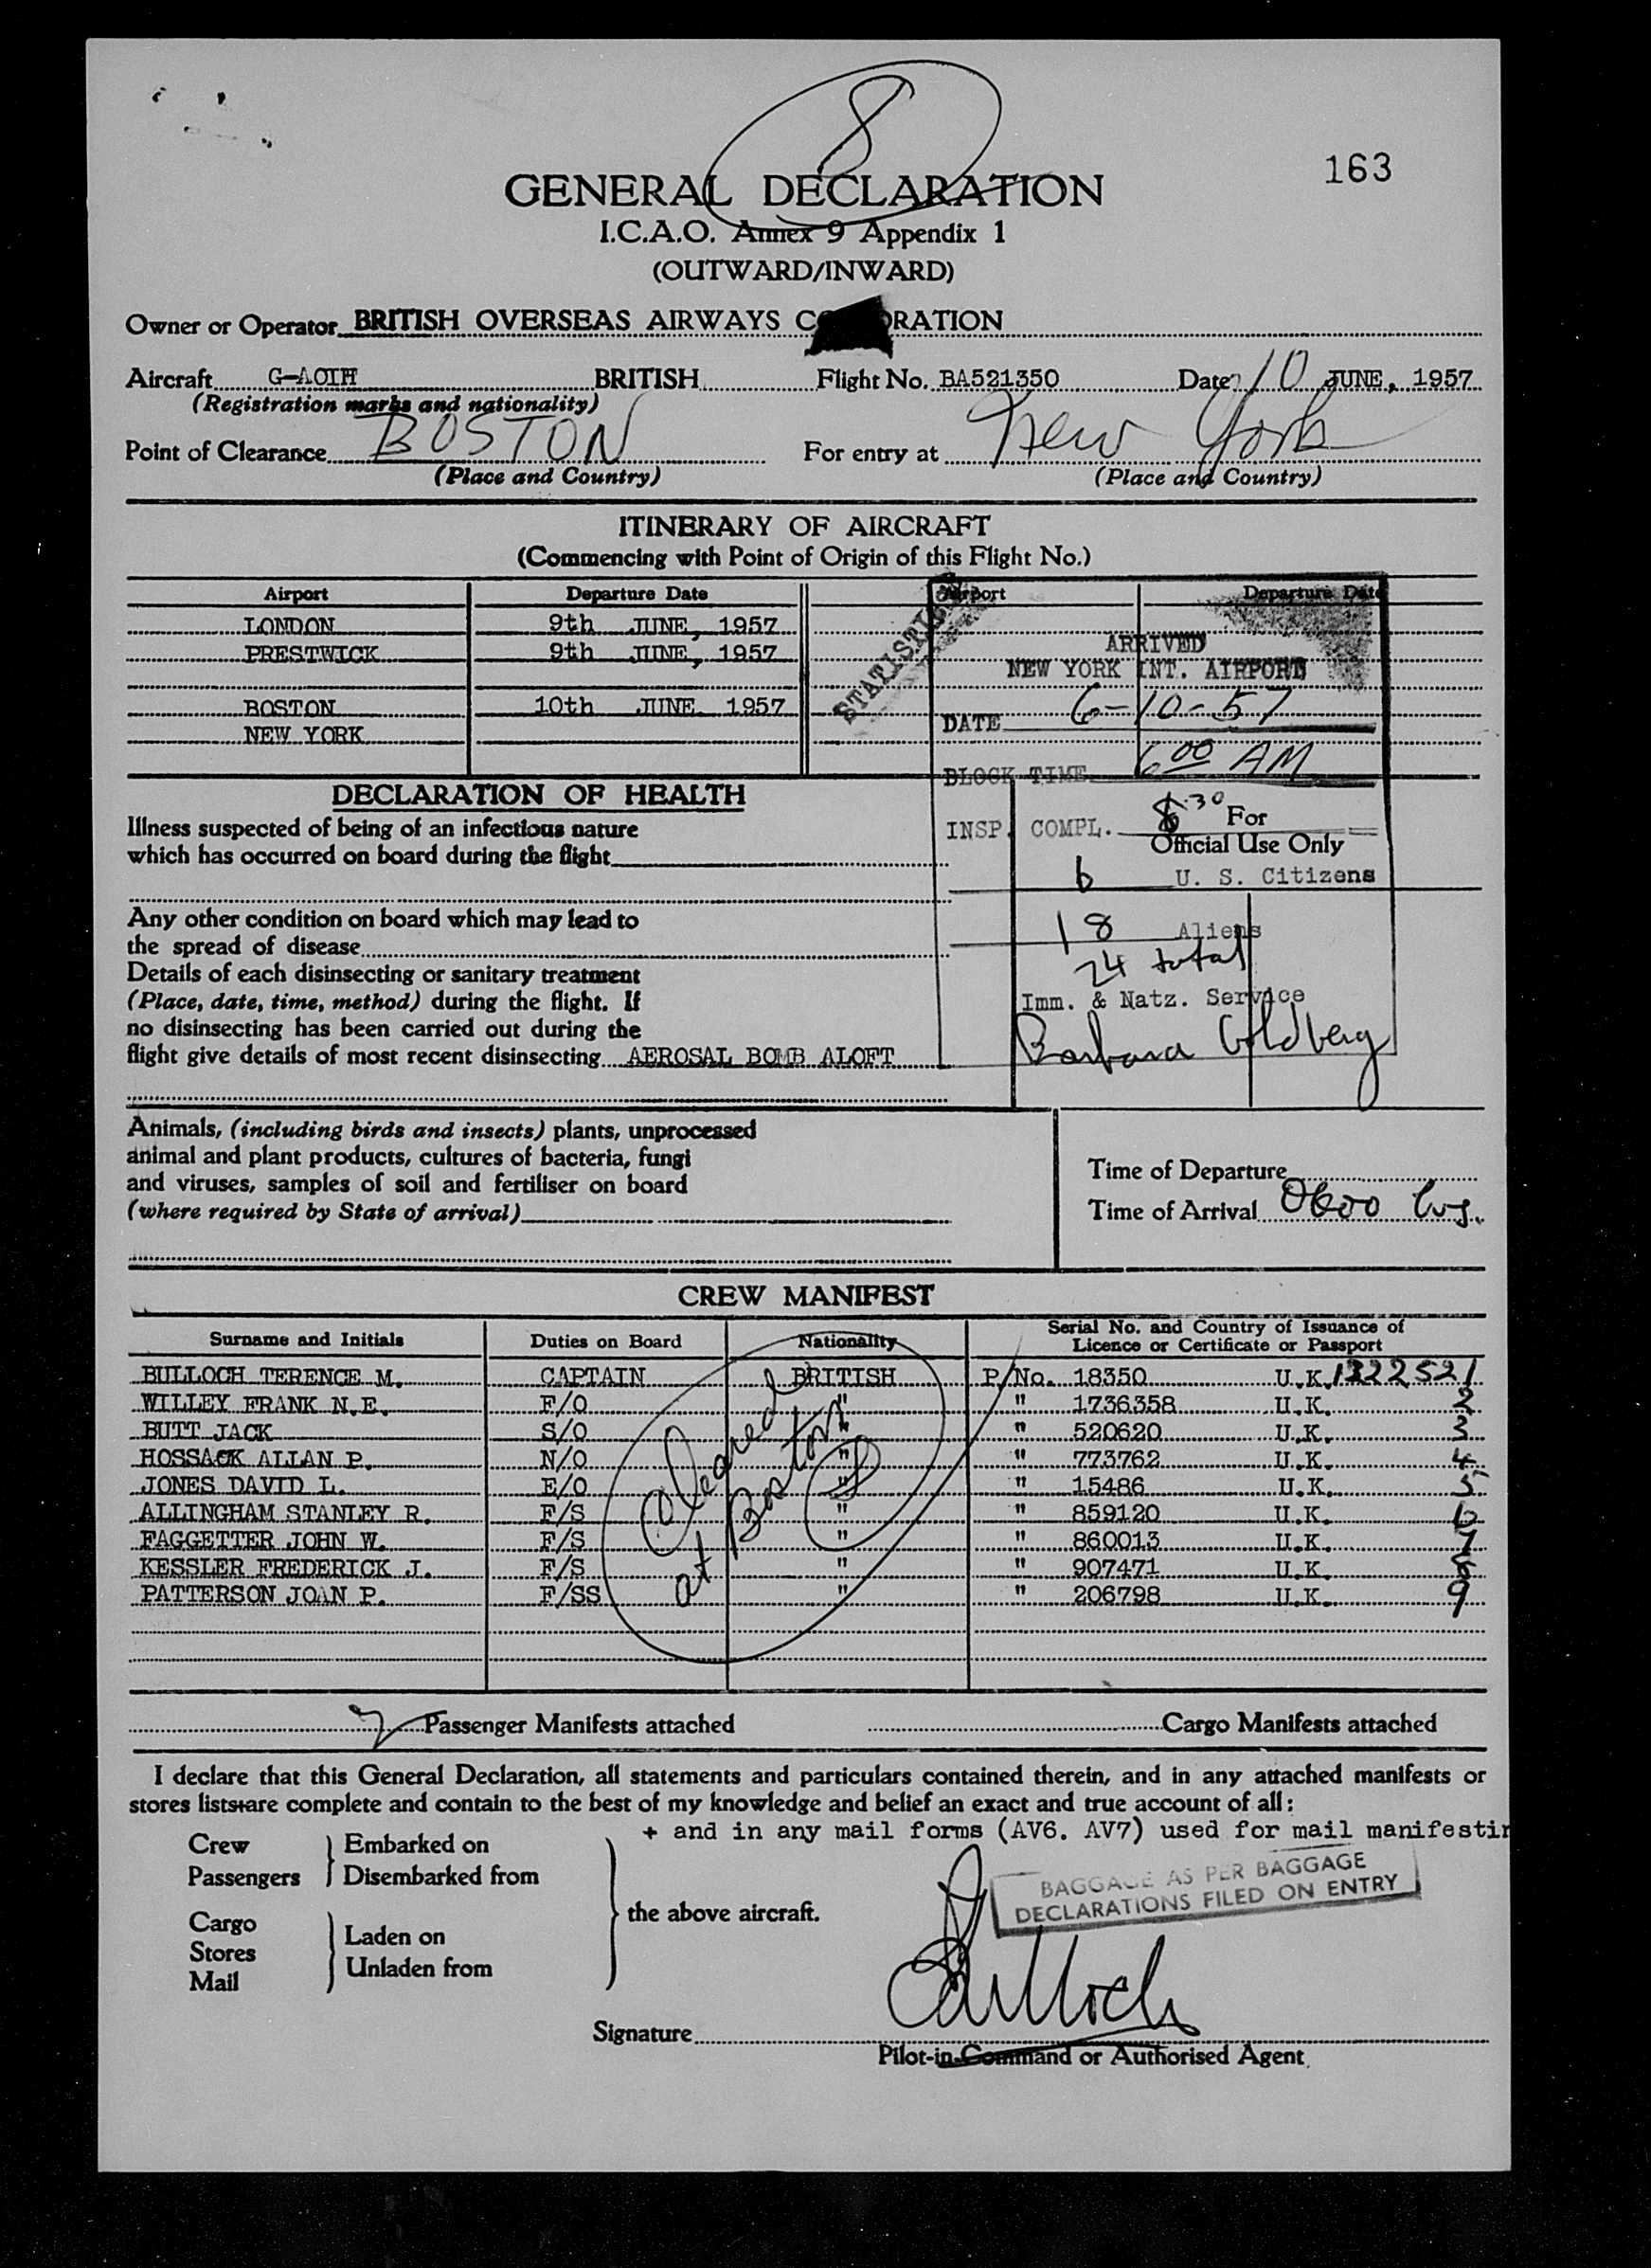 8
163
GENERAL DECLARATION
I.C.A.O. Annex 9 Appendix 1
(OUTWARD/INWARD)
Owner or Operator BRITISH OVERSEAS AIRWAYS C RATION
Aircraft G-AOIH BRITISH Flight No. BA521350 Date 10 JUNE, 1957
(Registration marks and nationality)
Point of Clearance BOSTON For entry at New York
(Place and Country) (Place and Country)
ITINERARY OF AIRCRAFT
(Commencing with Point of Origin of this Flight No.)
Airport Departure Date Airport Departure Date
LONDON 9th JUNE, 1957
PRESTWICK 9th JUNE, 1957
BOSTON 10th JUNE 1957
NEW YORK
ARRIVED
NEW YORK INT. AIRPORT
DATE 6-10-57
BLOCK TIME 6 00 AM
INSP. COMPL. 30
For
Official Use Only
6 U. S. Citizens
18 Aliens
24 total
Imm. & Natz. Service
Barbara Goldberg
DECLARATION OF HEALTH
Illness suspected of being of an infectious nature
which has occurred on board during the flight
Any other condition on board which may lead to
the spread of disease
Details of each disinsecting or sanitary treatment
(Place, date, time, method) during the flight. If
no disinsecting has been carried out during the
flight give details of most recent disinsecting AEROSAL BOMB ALOFT
Animals, (including birds and insects) plants, unprocessed
animal and plant products, cultures of bacteria, fungi
and viruses, samples of soil and fertiliser on board
(where required by State of arrival)
Time of Departure
Time of Arrival 0600 hrs.
CREW MANIFEST
Surname and Initials Duties on Board Nationality Serial No. and Country of Issuance of
Licence or Certificate or Passport
BULLOCH TERENCE M. CAPTAIN BRITISH P/No. 18350 U.K. 1322521
WILLEY FRANK N.E. F/O " " 1736358 U.K. 2
BUTT JACK S/O " " 520620 U.K. 3
HOSSACK ALLAN P. N/O " " 773762 U.K. 4
JONES DAVID L. E/O " " 15486 U.K. 5
ALLINGHAM STANLEY R. F/S " " 859120 U.K. 6
FAGGETTER JOHN W. F/S " " 860013 U.K. 7
KESSLER FREDERICK J. F/S " " 907471 U.K. 8
PATTERSON JOAN P. F/SS " " 206798 U.K. 9
Cleared
at Boston
Passenger Manifests attached Cargo Manifests attached
I declare that this General Declaration, all statements and particulars contained therein, and in any attached manifests or
stores lists+are complete and contain to the best of my knowledge and belief an exact and true account of all:
+ and in any mail forms (AV6. AV7) used for mail manifestin
Crew Embarked on
Passengers Disembarked from
the above aircraft.
Cargo
Stores
Mail
Laden on
Unladen from
BAGGAGE AS PER BAGGAGE
DECLARATIONS FILED ON ENTRY
Signature Bulloch
Pilot-in-Command or Authorised Agent.